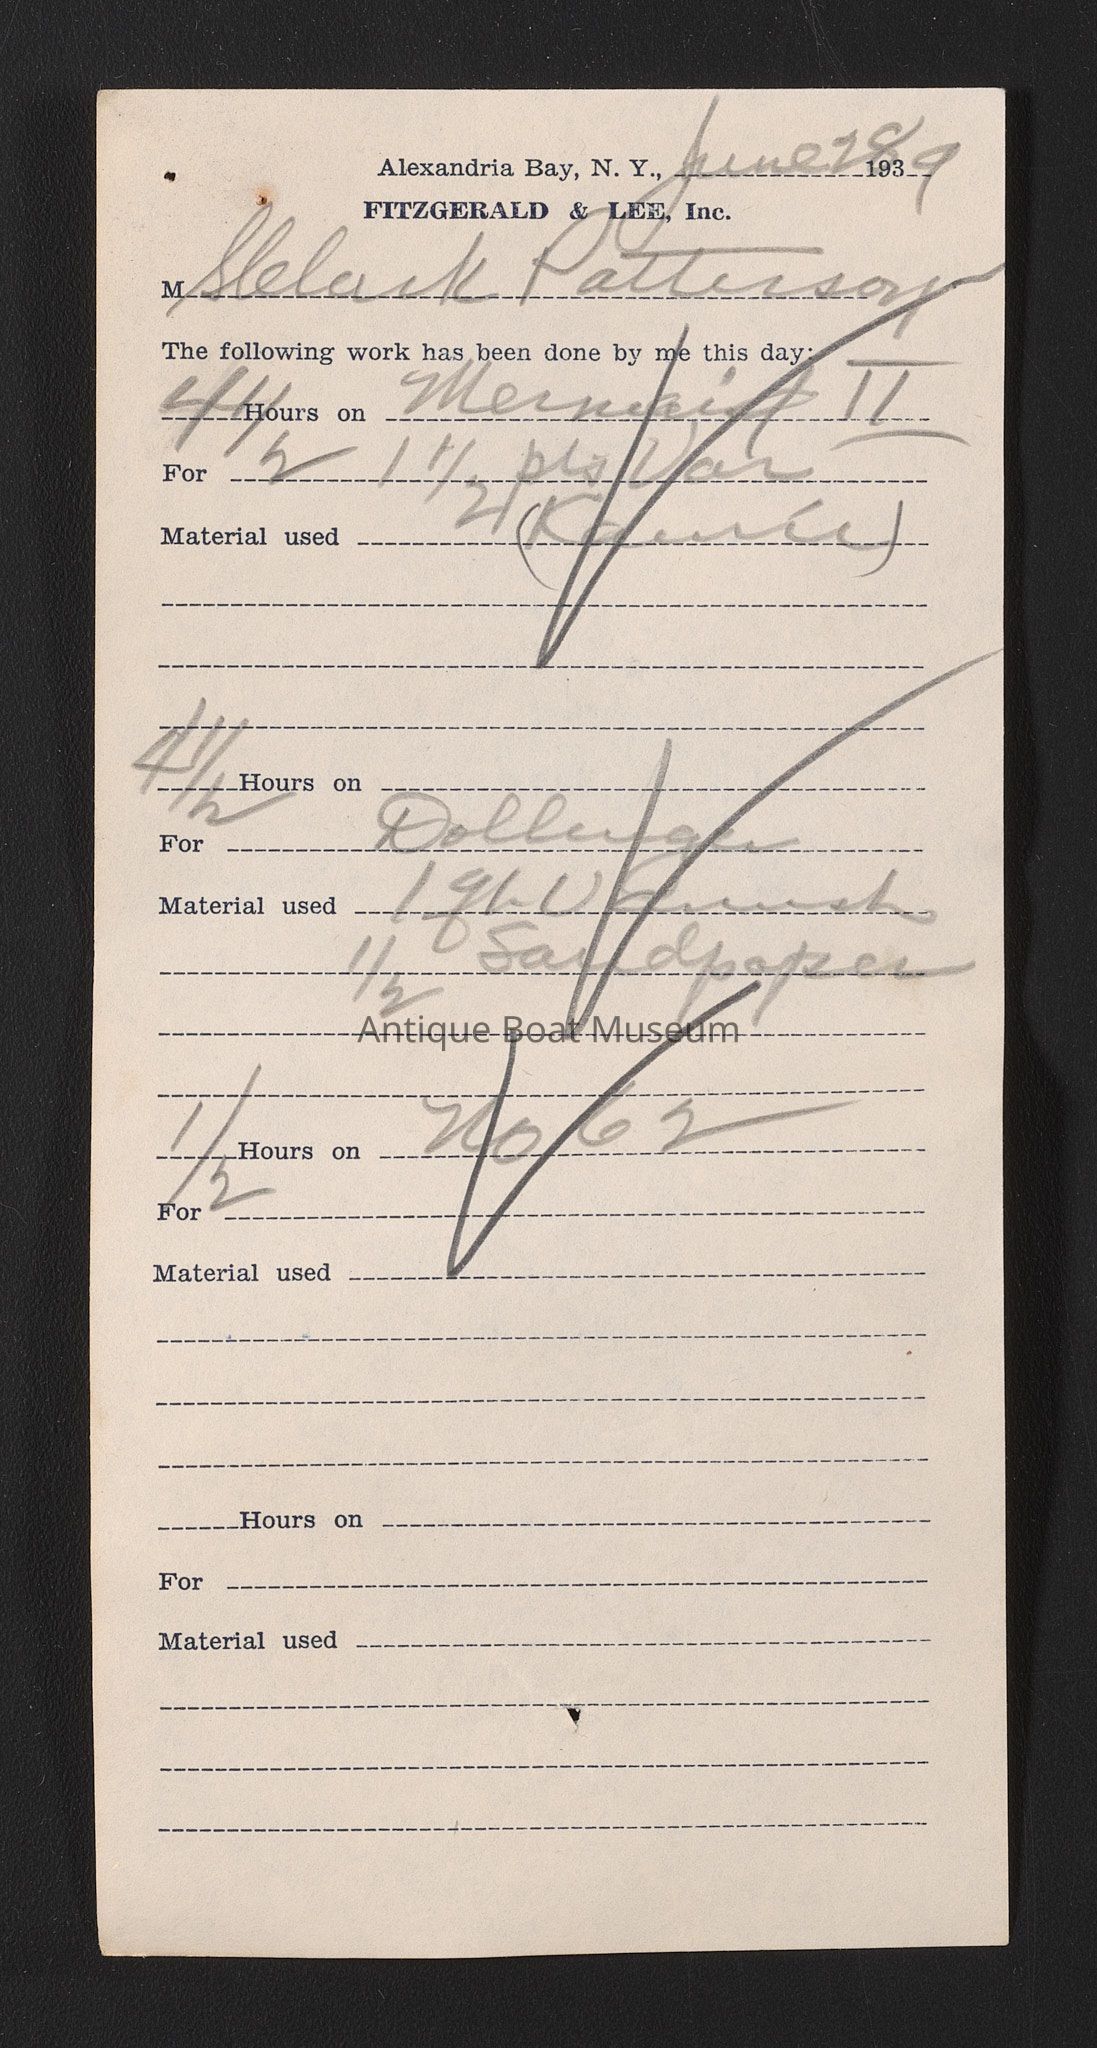 Alexandria Bay, N. Y., June 28 1939
FITZGERALD & LEE, Inc.
M Patterson
The following work has been done by me this day:
4 1/2 Hours on Mermaid II
For 1 1/2 pts Var
Material used
4 1/2 Hours on
For Dollinger
Material used 1 qt Varnish
1/2 Sandpaper
Antique Boat Museum
1/2 Hours on No 62
For
Material used
Hours on
For
Material used